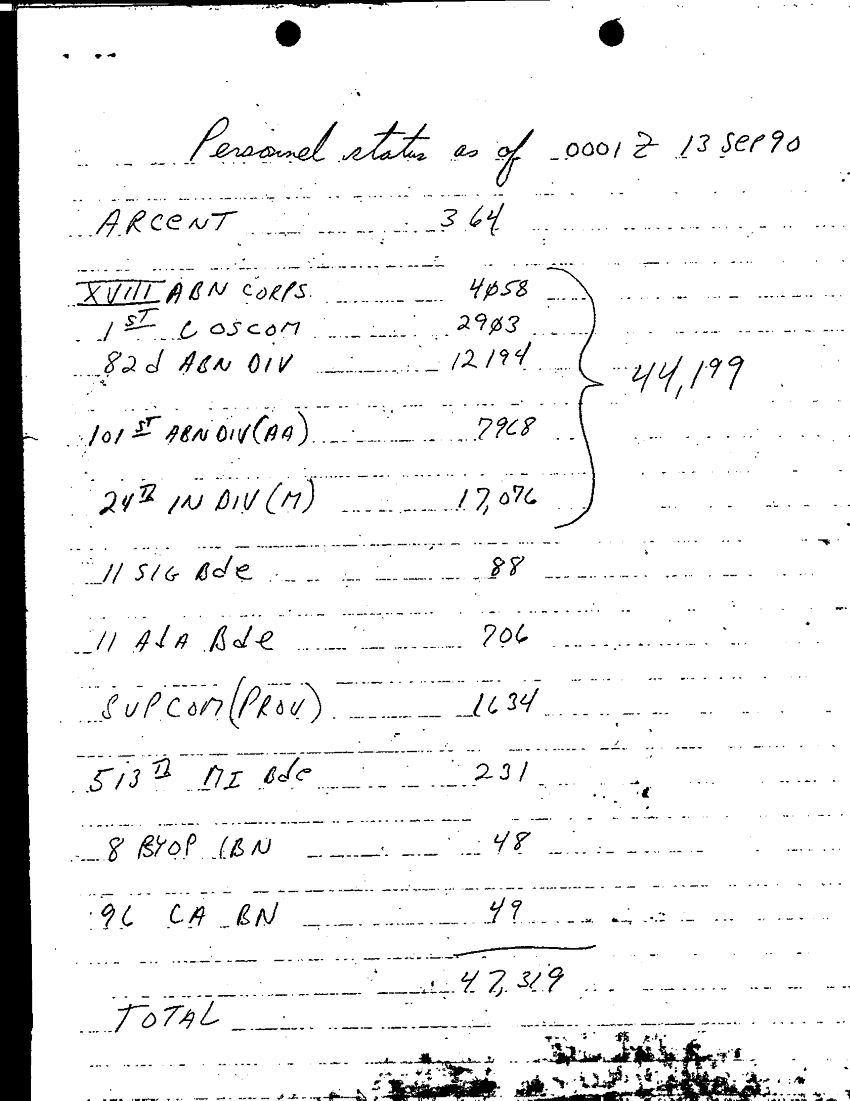 Personnel status as of 0001 Z 13 Sep 90
ARCENT 364
XVIII ABN CORPS 4058
1ST COSCOM 2903
82d ABN DIV 12194
44,199
101ST ABN DIV (AA) 7968
24TH IN DIV (M) 17,076
11 SIG Bde 88
11 AdA Bde 706
SUPCOM (PROV) 1634
513TH MI Bde 231
8 48
96 CA BN 49
47,319
TOTAL